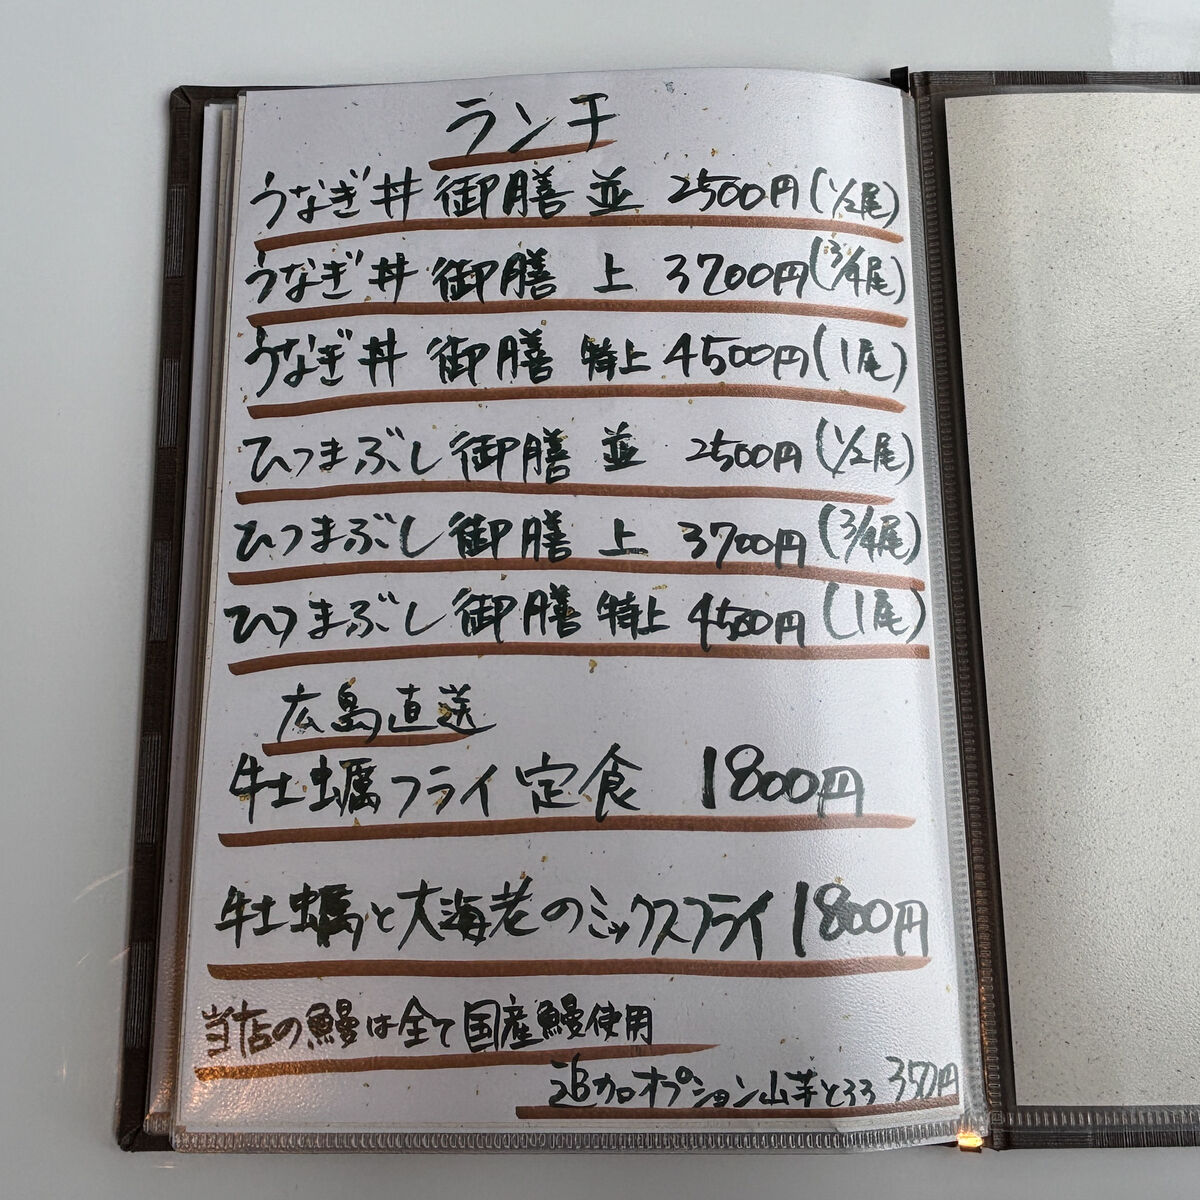 ランチ
うなぎ丼 御膳 並 2500円(1/2尾)
うなぎ丼 御膳 上 3700円(3/4尾)
うなぎ丼 御膳 特上 4500円(1尾)
ひつまぶし御膳 並 2500円(1/2尾)
ひつまぶし御膳 上 3700円(3/4尾)
ひつまぶし御膳 特上 4500円(1尾)
広島直送
牡蠣フライ定食 1800円
牡蠣と大海老のミックスフライ 1800円
当店の鰻は全て国産鰻使用
追加オプション山芋とろろ 350円